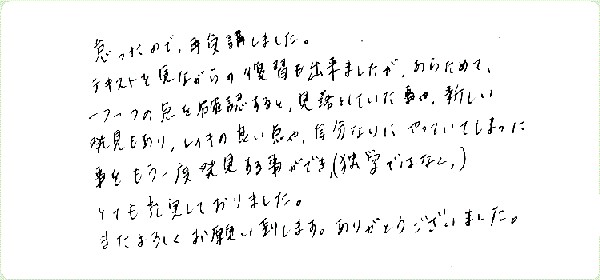 思ったので、再受講しました。
テキストを見ながらの復習も出来ましたが、あらためて、
一つ一つの点を確認すると、見落としていた事や、新しい
発見もあり、レイキの良い点や、自分なりに やっていてしまった
事を もう一度発見する事ができ、(独学ではなく、)
とても充実しておりました。
またよろしくお願い致します。ありがとうございました。